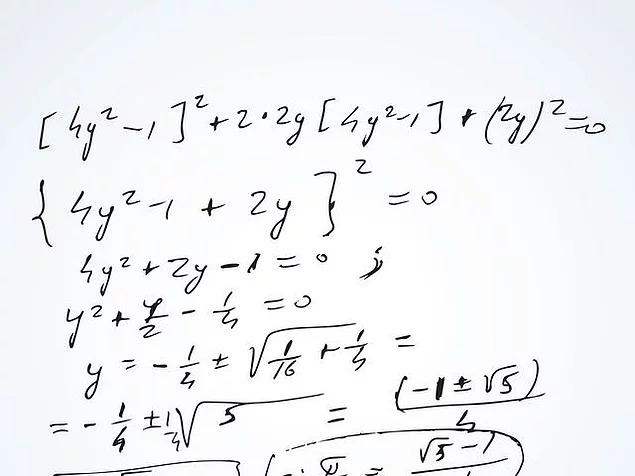 [4y² - 1]² + 2·2y [4y² - 1] + (2y)² = 0
{4y² - 1 + 2y}² = 0
4y² + 2y - 1 = 0 ;
y² + y/2 - 1/4 = 0
y = - 1/4 ± √(1/16 + 1/4) =
= - 1/4 ± 1/4 √5 = (-1 ± √5)/4
= √5 - 1